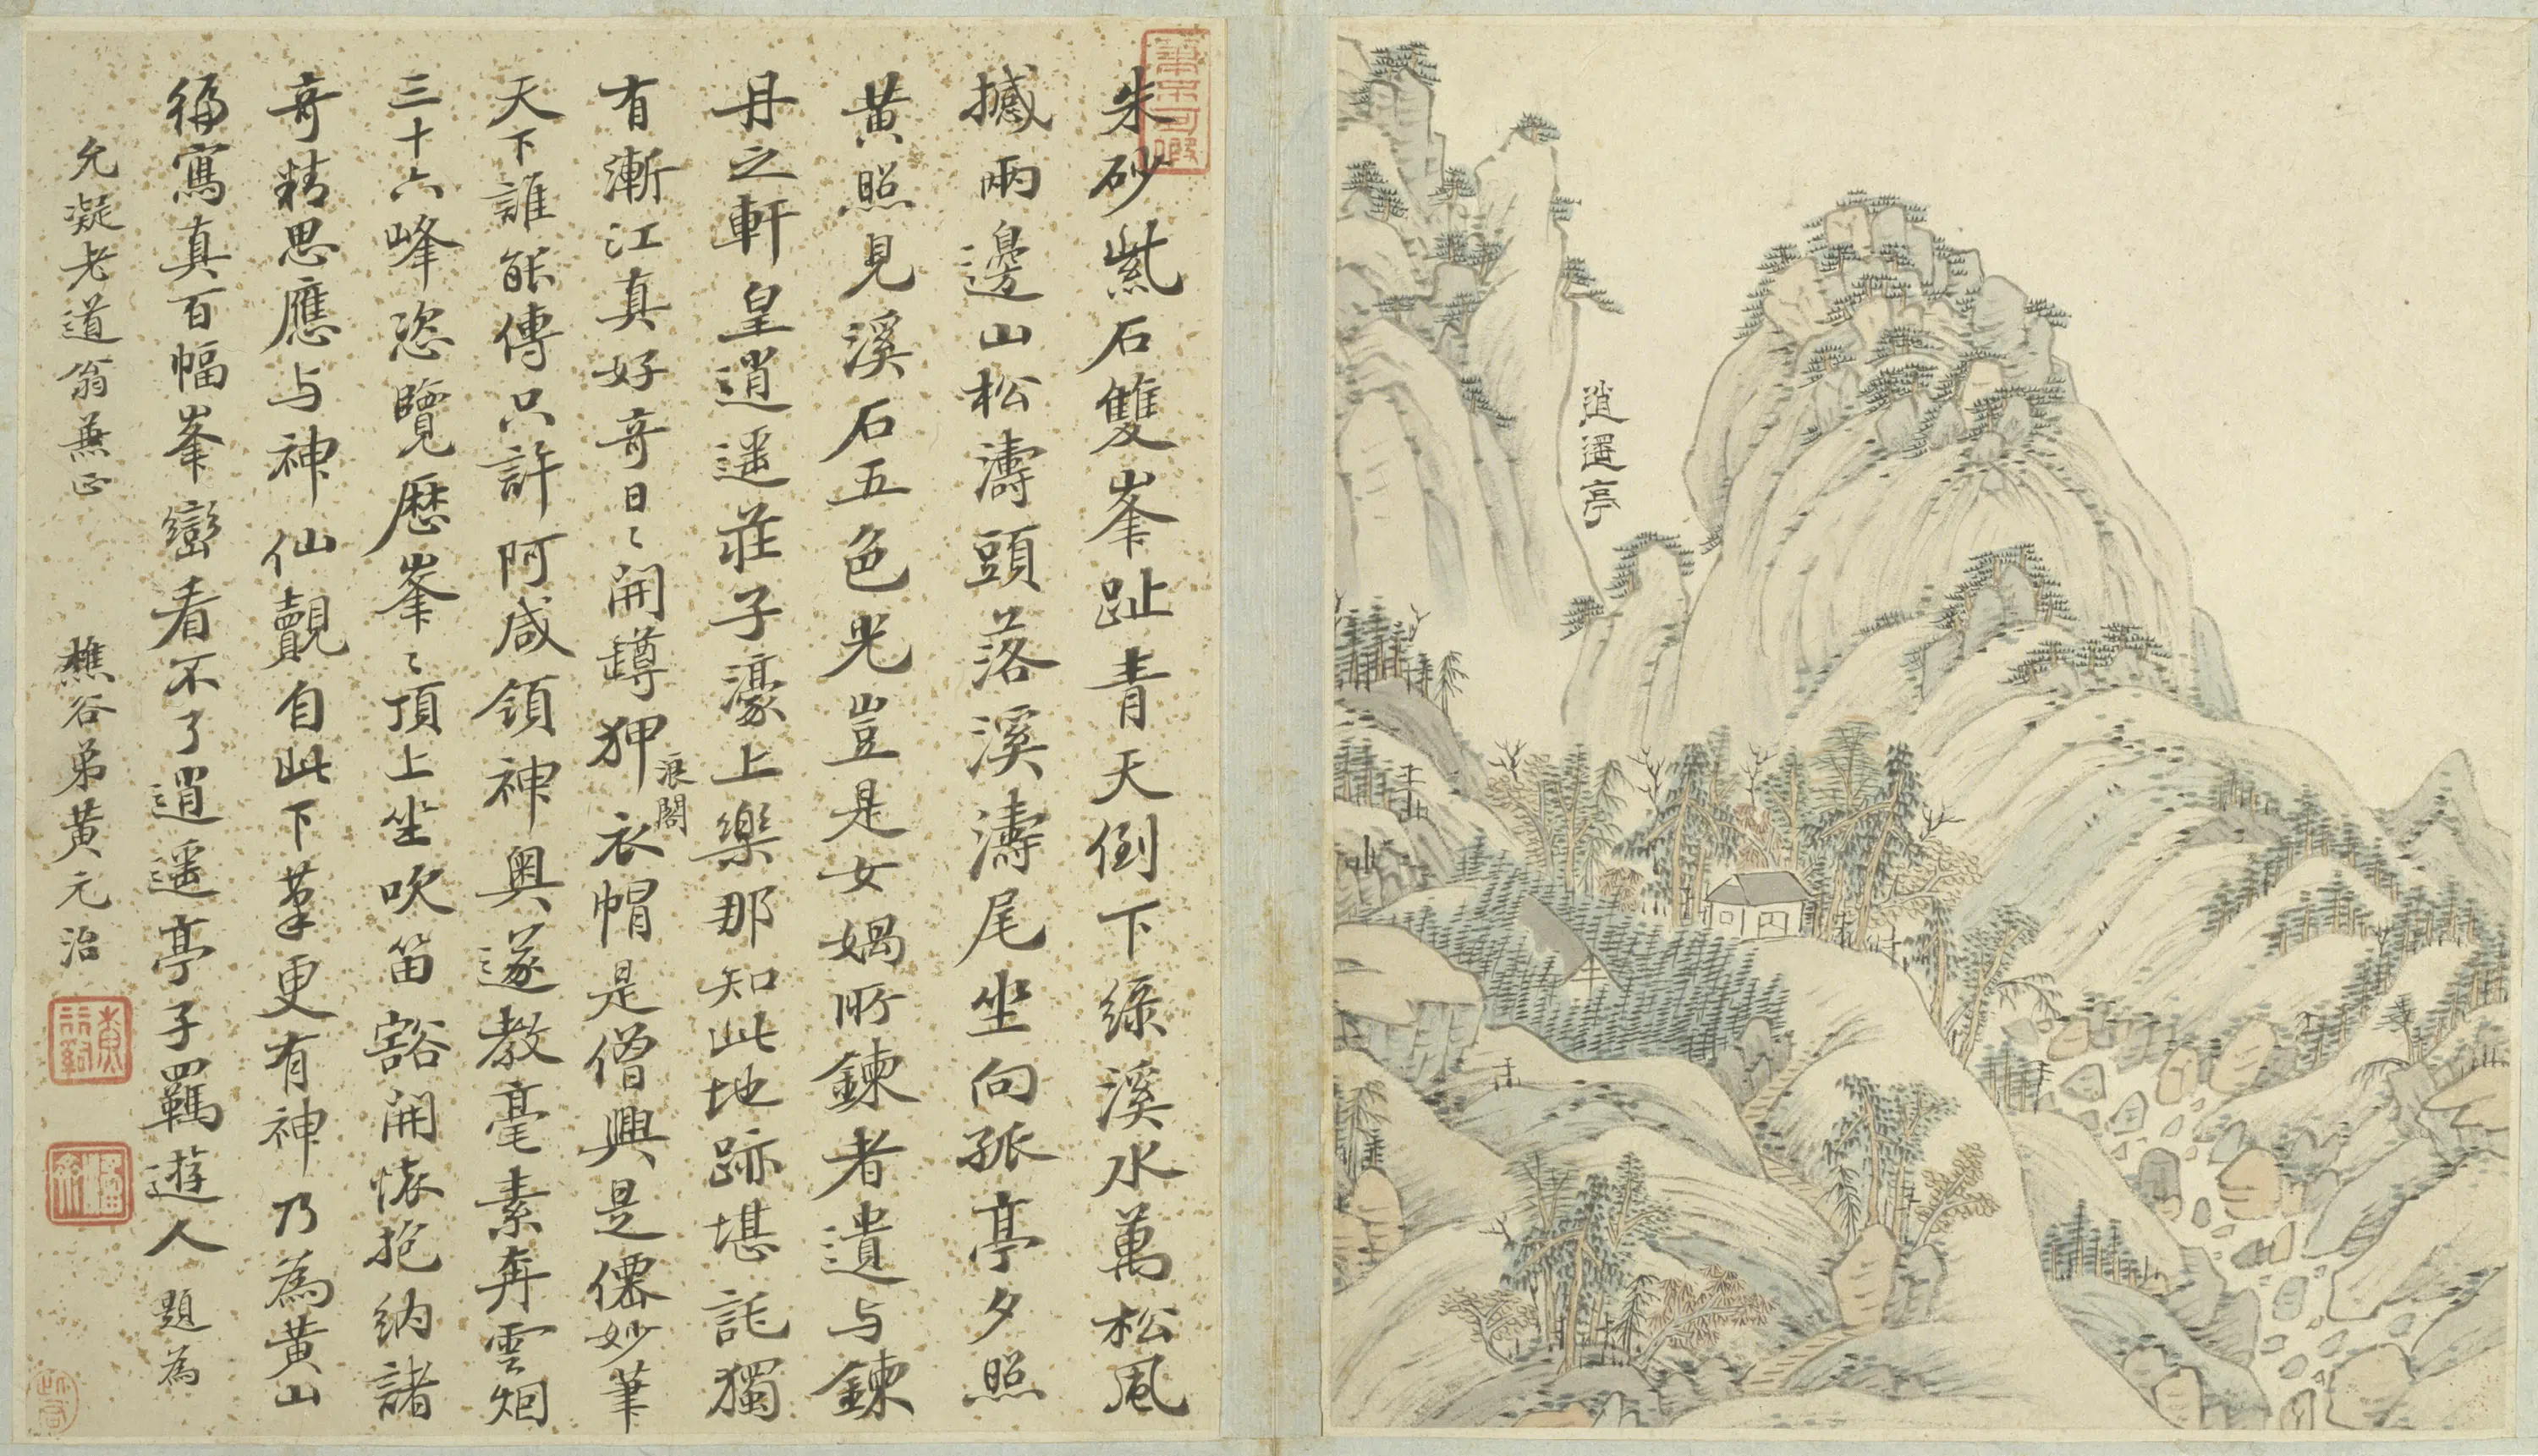 逍遥亭
朱砂紫石雙峯趾青天倒下綠溪水萬松風
撼兩邊山松濤頭落溪濤尾坐向孤亭夕照
黃照見溪石五色光豈是女媧所鍊者遺与鍊
丹之軒皇逍遥莊子濠上樂那知此地跡堪託獨
有漸江真好奇日〻開蹲狎衣帽是僧興是僊妙筆
浪閣
天下誰能傳只許阿咸領神奧遂教毫素奔雲烟
三十六峰恣覽歷峯〻頂上坐吹笛豁開懷抱納諸
奇精思應与神仙覿自此下筆更有神乃為黃山
徧寫真百幅峯巒看不了逍遥亭子羈遊人 題為
允凝老道翁兼正 樵谷弟黃元治